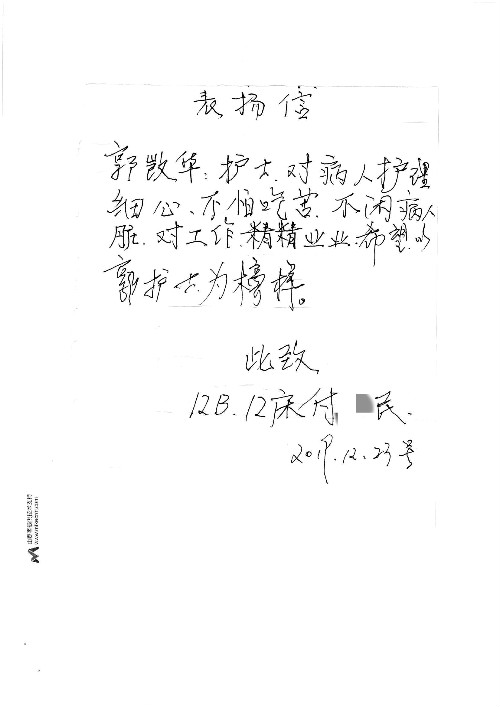 表扬信
郭改华:护士.对病人护理
细心、不怕吃苦.不闲病人
脏.对工作精精业业.希望以
郭护士为榜样。
此致
12B.12床付 民.
2019.12.23号